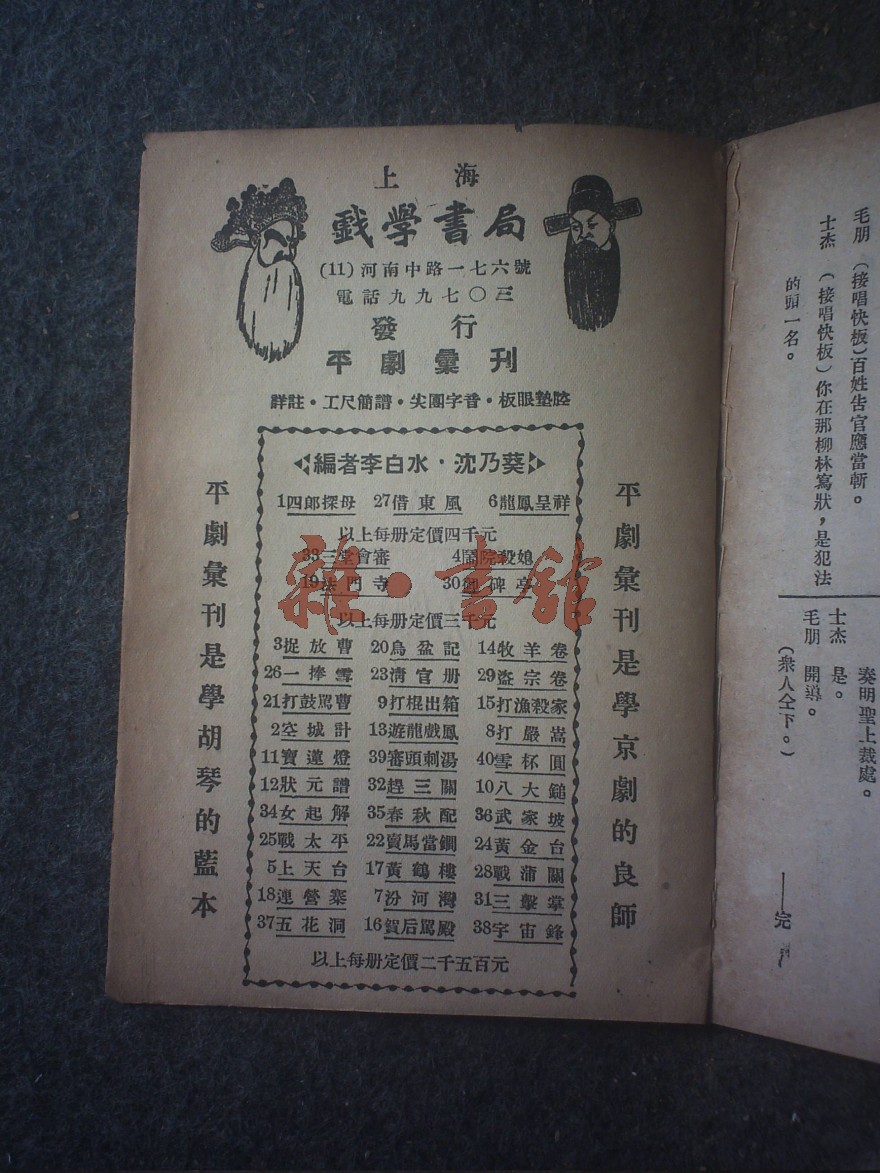 上海
戲學書局
(11)河南中路一七六號
電話九九七〇三
發行
平劇彙刊
詳註・工尺簡譜・尖團字音・板眼墊腔
編者李白水・沈乃葵
1四郎探母 27借東風 6龍鳳呈祥
以上每册定價四千元
33三堂會審 4鬧院殺媳
19法門寺 30御碑亭
以上每册定價三千元
3捉放曹 20烏盆記 14牧羊卷
26一捧雪 23清官册 29盜宗卷
21打鼓駡曹 9打棍出箱 15打漁殺家
2空城計 13遊龍戲鳳 8打嚴嵩
11寶蓮燈 39審頭刺湯 40雪杯圓
12狀元譜 32趕三關 10八大鎚
34女起解 35春秋配 36武家坡
25戰太平 22賣馬當鐧 24黃金台
5上天台 17黃鶴樓 28戰蒲關
18連營寨 7汾河灣 31三擊掌
37五花洞 16賀后駡殿 38宇宙鋒
以上每册定價二千五百元
平劇彙刊是學京劇的良師
平劇彙刊是學胡琴的藍本
雜・書館
毛朋 (接唱快板)百姓告官應當斬。
士杰 (接唱快板)你在那柳林寫狀,是犯法
的頭一名。
奏明聖上裁處。
士杰 是。
毛朋 開導。
(衆人仝下。)
——完